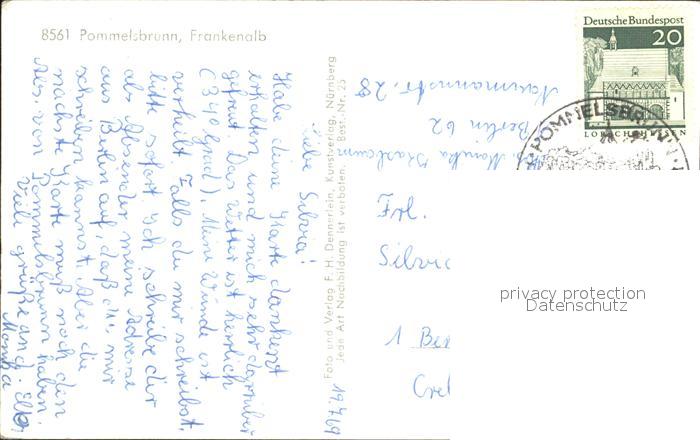 8561 Pommelsbrunn, Frankenalb
Deutsche Bundespost
20
LORSCH/HESSEN
POMMELSBRUNN
19.7.69
Liebe Silvia!
Habe deine Karte dankend
erhalten und mich sehr darüber
gefreut Das Wetter ist herrlich
(340 grad). Meine Wunde ist
verheilt Falls du mir schreibst,
bitte sofort Ich schreibe dir
als Absender meine Adresse
aus Berlin auf, daß du mir
schreiben kannst. Aber die
nächste Karte muß noch den
Abs. von Pommelsbrunn haben.
Viele grüße and.
Monika
Foto und Verlag F. H. Dennerlein, Kunstverlag, Nürnberg
Jede Art Nachbildung ist verboten. Best.-Nr. 25
Monika
Berlin 62
Naumannstr. 28
Frl.
Silvia
1 Ber
privacy protection
Datenschutz